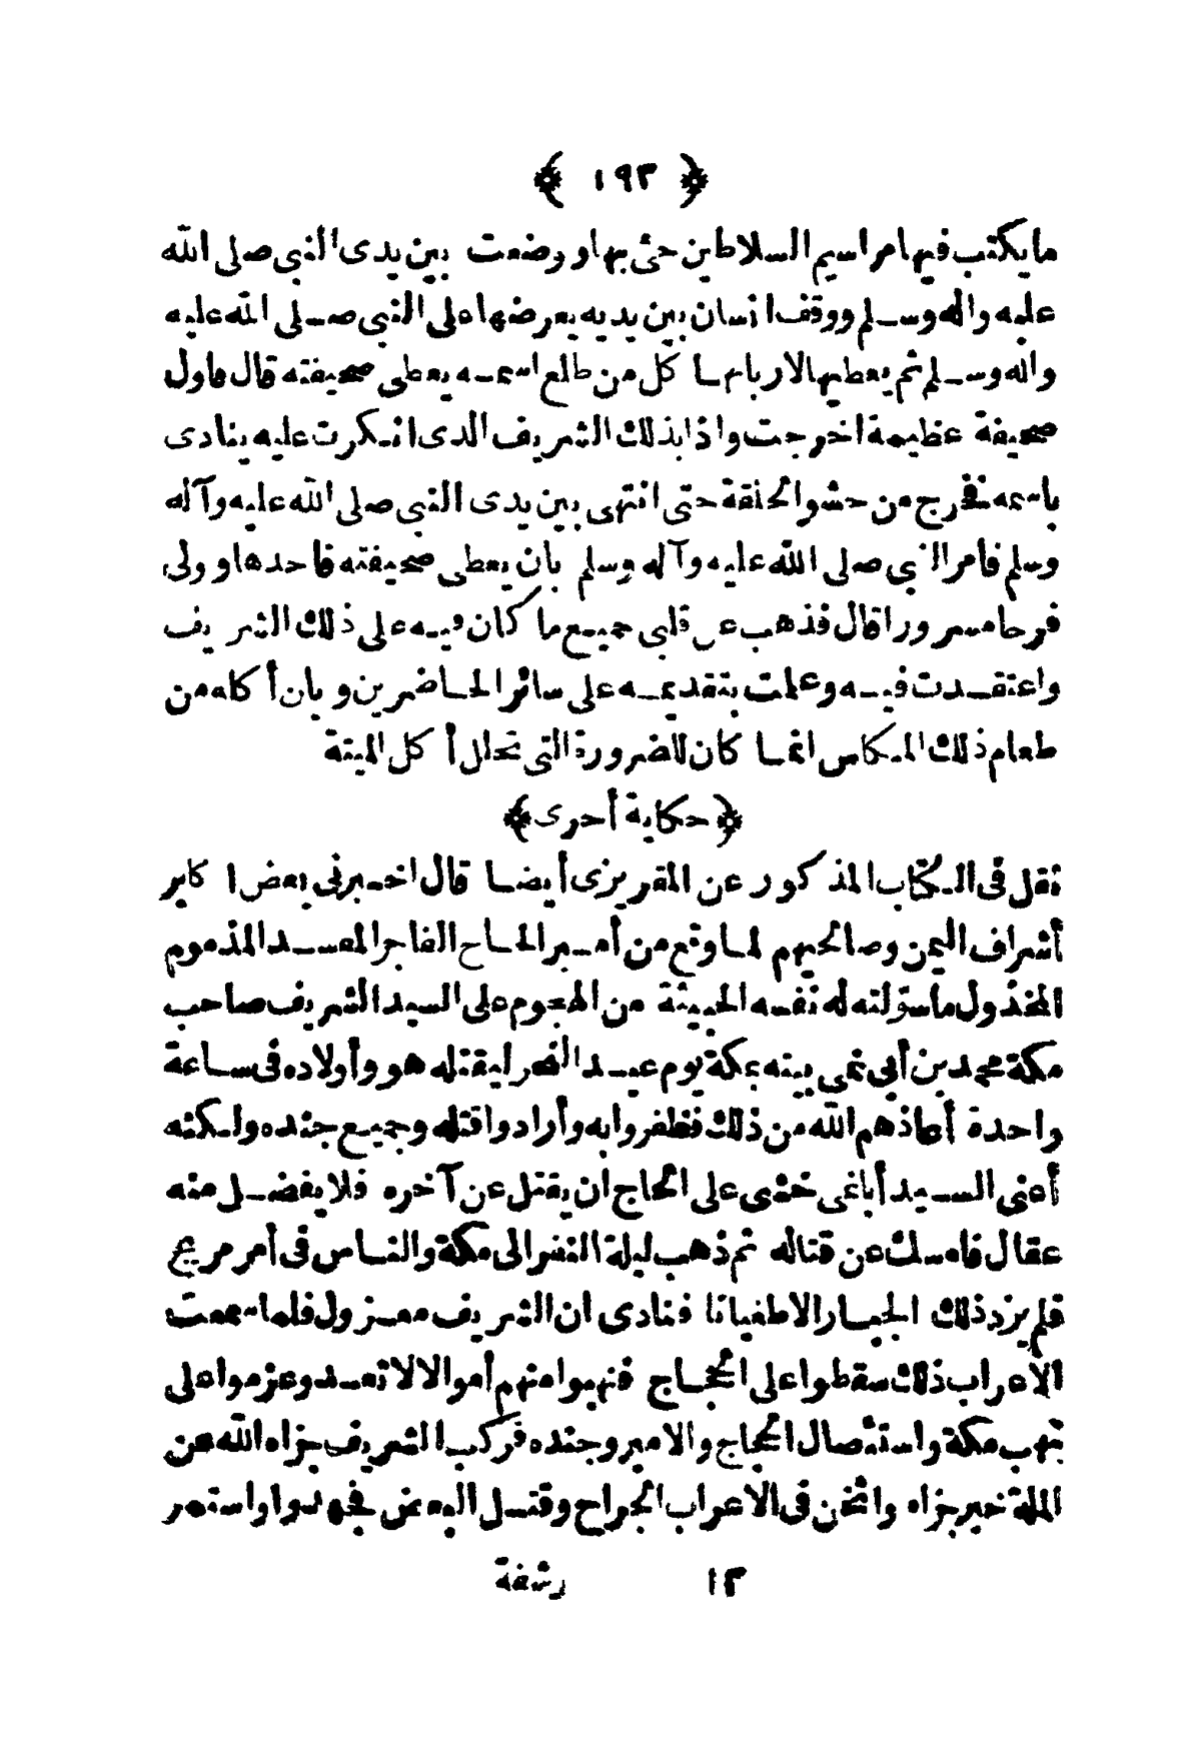 ﴿ ١٩٣ ﴾
ما يكتب فيها مراسيم السلاطين حتى بها ووضعت بين يدى النبى صلى الله
عليه واله وسلم ووقف انسان بين يديه يعرضها على النبى صلى الله عليه
واله وسلم ثم يعطيها لاربابها كل من طلع اسمه يعطى صحيفته قال فاول
صحيفة عظيمة اخرجت واذا بذلك الشريف الدى انكرت عليه ينادى
باسمه فخرج من حشو الحلقة حتى انتهى بين يدى النبى صلى الله عليه وآله
وسلم فامر النبى صلى الله عليه وآله وسلم بان يعطى صحيفته فاحدها وولى
فرحا مسرورا قال فذهب عن قلبى جميع ما كان فيه على ذلك الشريف
واعتقدت فيه وعلمت بتقديمه على سائر الحاضرين وبان أكله من
طعام ذلك المكاس انما كان للضرورة التى تحلل أكل الميتة
﴿حكاية أحرى﴾
نقل فى الكتاب المذكور عن المقريزى أيضا قال اخبرنى بعض اكابر
أشراف اليمن وصالحيهم لما وقع من أمير الحاح الفاجر المفسد المذموم
المخذول ما سولته له نفسه الخبيثة من الهجوم على السيد الشريف صاحب
مكة محمد بن أبي نمى بيته بمكة يوم عيد النحر ليقتله هو وأولاده فى ساعة
واحدة أعاذهم الله من ذلك فظفروا به وأرادوا قتله وجميع جنده ولكنه
أعنى السيد أبا نمى خشى على الحاج ان يقتل عن آخره فلا يفضل منه
عقال فامسك عن قتاله ثم ذهب ليلة النفر الى مكة والناس فى أمر مريج
فلم يزد ذلك الجبار الاطغيانا فنادى ان الشريف معزول فلما سمعت
الاعراب ذلك سقطوا على الحجاج فنهبوا منهم أموالا لا تعد وعزموا على
نهب مكة واستئصال الحجاج والامير وجنده فركب الشريف جزاه الله عن
الملة خير جزاه واثخن فى الاعراب الجراح وقتل البعض فجهدوا واستمر
١٣ رشفة